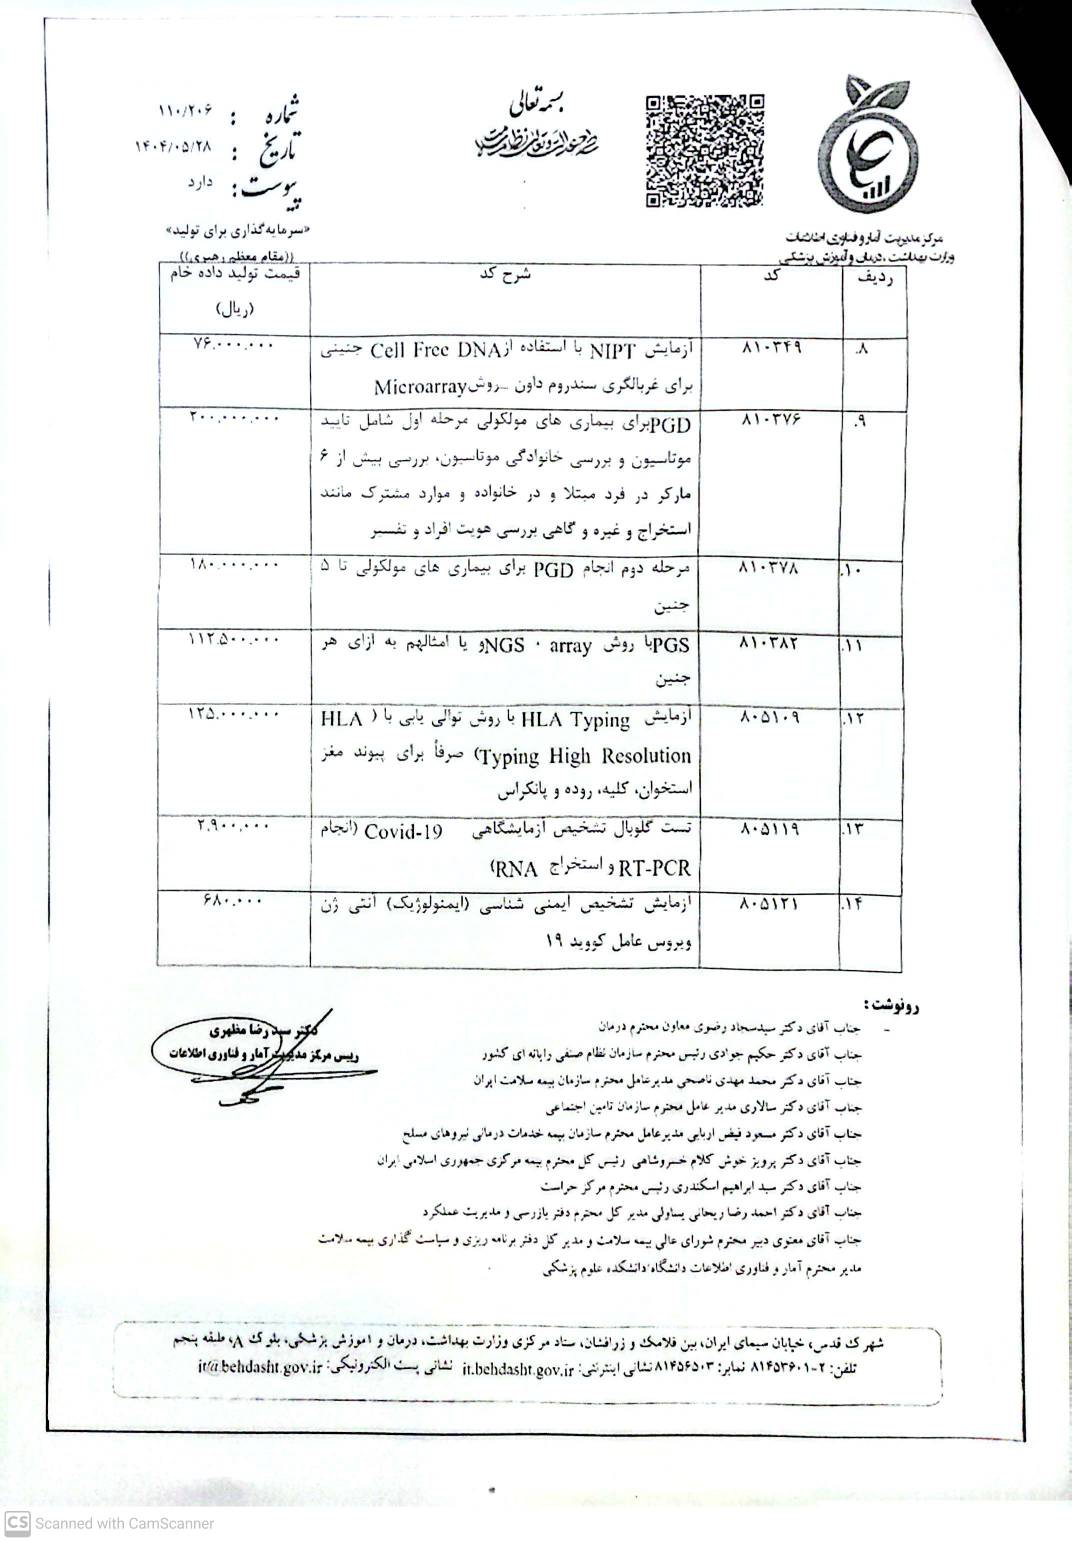 بسمه تعالی
شماره : ۱۱۰/۲۰۶
تاریخ : ۱۴۰۴/۰۵/۲۸
پیوست : دارد
«سرمایه‌گذاری برای تولید»
((مقام معظم رهبری))
مرکز مدیریت آمار و فناوری اطلاعات
وزارت بهداشت، درمان و آموزش پزشکی
ردیف کد شرح کد قیمت تولید داده خام
(ریال)
۸. ۸۱۰۳۴۹ آزمایش NIPT با استفاده از Cell Free DNA جنینی ۷۶.۰۰۰.۰۰۰
برای غربالگری سندروم داون –روش Microarray
۹. ۸۱۰۳۷۶ PGDبرای بیماری های مولکولی مرحله اول شامل تایید ۲۰۰.۰۰۰.۰۰۰
موتاسیون و بررسی خانوادگی موتاسیون، بررسی بیش از ۶
مارکر در فرد مبتلا و در خانواده و موارد مشترک مانند
استخراج و غیره و گاهی بررسی هویت افراد و تفسیر
۱۰. ۸۱۰۳۷۸ مرحله دوم انجام PGD برای بیماری های مولکولی تا ۵ ۱۸۰.۰۰۰.۰۰۰
جنین
۱۱. ۸۱۰۳۸۲ PGSبا روش NGS ، array و یا امثالهم به ازای هر ۱۱۲.۵۰۰.۰۰۰
جنین
۱۲. ۸۰۵۱۰۹ آزمایش HLA Typing با روش توالی یابی با ( HLA ۱۲۵.۰۰۰.۰۰۰
Typing High Resolution) صرفاً برای پیوند مغز
استخوان، کلیه، روده و پانکراس
۱۳. ۸۰۵۱۱۹ تست گلوبال تشخیص آزمایشگاهی Covid-19 (انجام ۲.۹۰۰.۰۰۰
RT-PCR و استخراج RNA)
۱۴. ۸۰۵۱۲۱ آزمایش تشخیص ایمنی شناسی (ایمنولوژیک) آنتی ژن ۶۸۰.۰۰۰
ویروس عامل کووید ۱۹
دکتر سید رضا مظهری
رییس مرکز مدیریت آمار و فناوری اطلاعات
رونوشت :
- جناب آقای دکتر سیدسجاد رضوی معاون محترم درمان
جناب آقای دکتر حکیم جوادی رئیس محترم سازمان نظام صنفی رایانه ای کشور
جناب آقای دکتر محمد مهدی ناصحی مدیرعامل محترم سازمان بیمه سلامت ایران
جناب آقای دکتر سالاری مدیر عامل محترم سازمان تامین اجتماعی
جناب آقای دکتر مسعود فیض اربابی مدیرعامل محترم سازمان بیمه خدمات درمانی نیروهای مسلح
جناب آقای دکتر پرویز خوش کلام خسروشاهی رئیس کل محترم بیمه مرکزی جمهوری اسلامی ایران
جناب آقای دکتر سید ابراهیم اسکندری رئیس محترم مرکز حراست
جناب آقای دکتر احمد رضا ریحانی یساولی مدیر کل محترم دفتر بازرسی و مدیریت عملکرد
جناب آقای معنوی دبیر محترم شورای عالی بیمه سلامت و مدیر کل دفتر برنامه ریزی و سیاست گذاری بیمه سلامت
مدیر محترم آمار و فناوری اطلاعات دانشگاه/دانشکده علوم پزشکی
شهرک قدس، خیابان سیمای ایران، بین فلامک و زرافشان، ستاد مرکزی وزارت بهداشت، درمان و آموزش پزشکی، بلوک A، طبقه پنجم
تلفن: ۲-۸۱۴۵۳۶۰۱ نمابر: ۸۱۴۵۶۵۰۳ نشانی اینترنتی: it.behdasht.gov.ir نشانی پست الکترونیکی: it@behdasht.gov.ir
CS Scanned with CamScanner